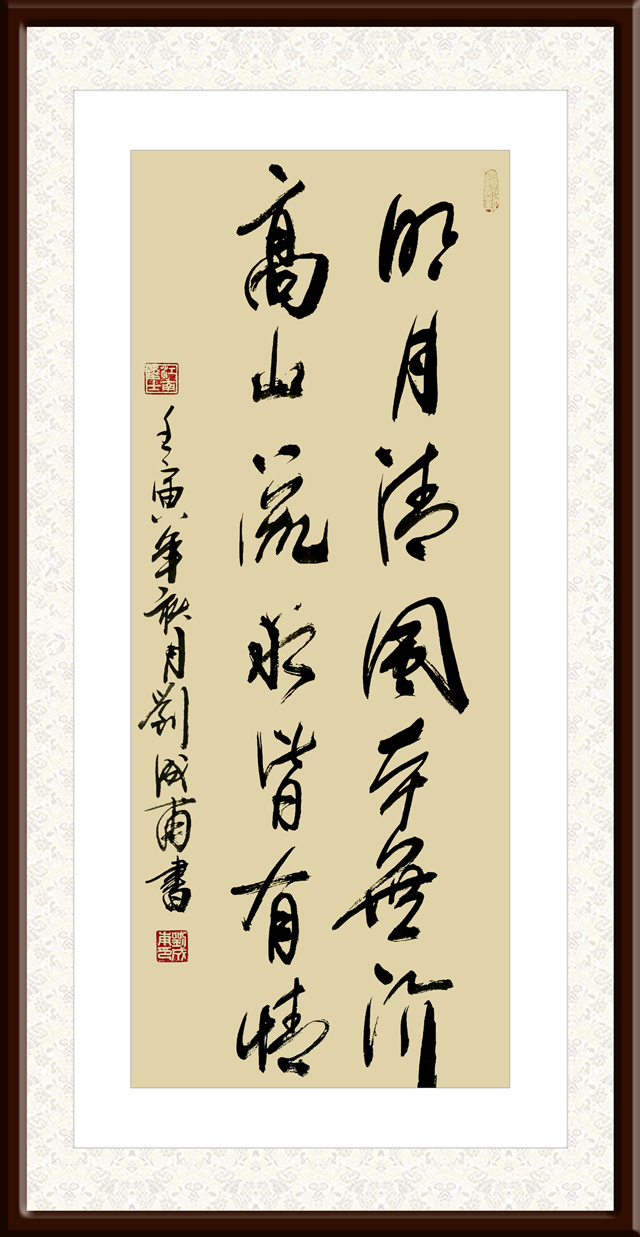 明月清風本無价
高山流水皆有情
壬寅年秋月劉成莆書